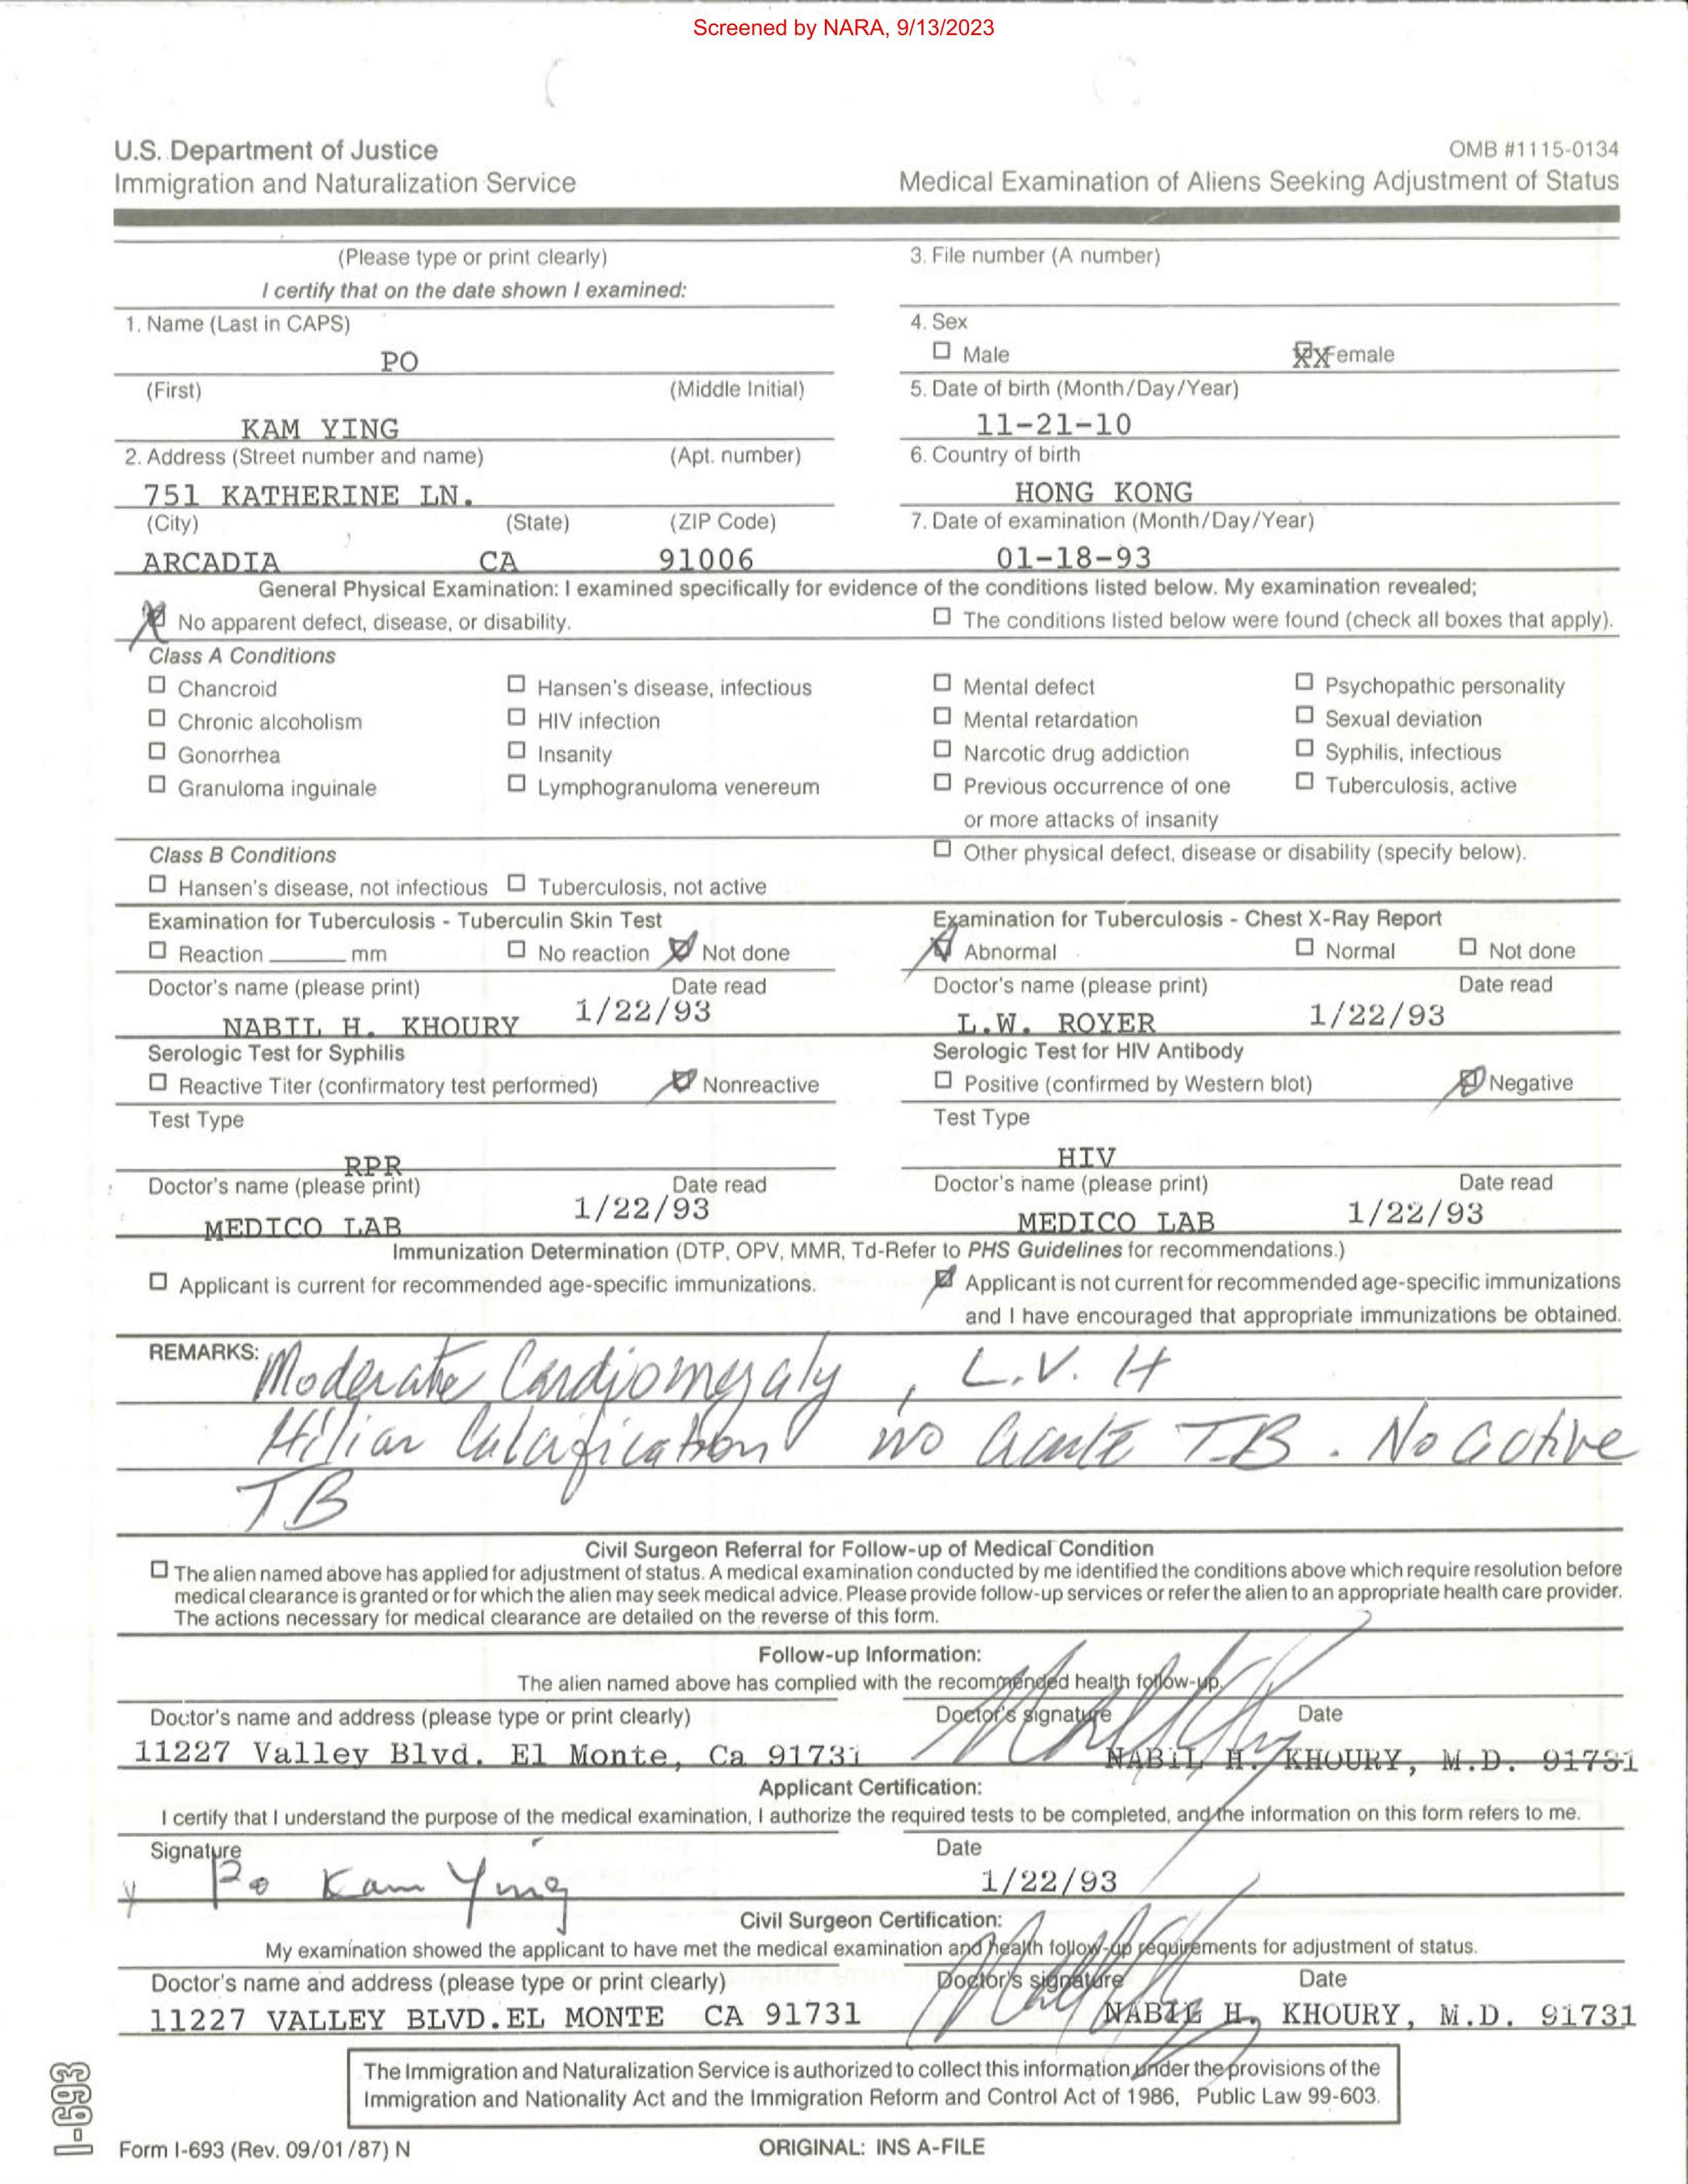 Screened by NARA, 9/13/2023
U.S. Department of Justice
Immigration and Naturalization Service
OMB #1115-0134
Medical Examination of Aliens Seeking Adjustment of Status
(Please type or print clearly)
I certify that on the date shown I examined:
3. File number (A number)
1. Name (Last in CAPS)
PO
4. Sex
Male
XX Female
(First) (Middle Initial)
KAM YING
5. Date of birth (Month/Day/Year)
11-21-10
2. Address (Street number and name) (Apt. number)
751 KATHERINE LN.
6. Country of birth
HONG KONG
(City) (State) (ZIP Code)
ARCADIA CA 91006
7. Date of examination (Month/Day/Year)
01-18-93
General Physical Examination: I examined specifically for evidence of the conditions listed below. My examination revealed;
No apparent defect, disease, or disability.
The conditions listed below were found (check all boxes that apply).
Class A Conditions
Chancroid Hansen's disease, infectious Mental defect Psychopathic personality
Chronic alcoholism HIV infection Mental retardation Sexual deviation
Gonorrhea Insanity Narcotic drug addiction Syphilis, infectious
Granuloma inguinale Lymphogranuloma venereum Previous occurrence of one Tuberculosis, active
or more attacks of insanity
Class B Conditions
Other physical defect, disease or disability (specify below).
Hansen's disease, not infectious Tuberculosis, not active
Examination for Tuberculosis - Tuberculin Skin Test
Reaction mm No reaction Not done
Examination for Tuberculosis - Chest X-Ray Report
Abnormal Normal Not done
Doctor's name (please print) Date read
NABIL H. KHOURY 1/22/93
Doctor's name (please print) Date read
L.W. ROYER 1/22/93
Serologic Test for Syphilis
Reactive Titer (confirmatory test performed) Nonreactive
Serologic Test for HIV Antibody
Positive (confirmed by Western blot) Negative
Test Type
RPR
Test Type
HIV
Doctor's name (please print) Date read
MEDICO LAB 1/22/93
Doctor's name (please print) Date read
MEDICO LAB 1/22/93
Immunization Determination (DTP, OPV, MMR, Td-Refer to PHS Guidelines for recommendations.)
Applicant is current for recommended age-specific immunizations.
Applicant is not current for recommended age-specific immunizations
and I have encouraged that appropriate immunizations be obtained.
REMARKS: Moderate Cardiomegaly, L.V.H
Hiliar Calcification no acute T.B. No active
TB
Civil Surgeon Referral for Follow-up of Medical Condition
The alien named above has applied for adjustment of status. A medical examination conducted by me identified the conditions above which require resolution before
medical clearance is granted or for which the alien may seek medical advice. Please provide follow-up services or refer the alien to an appropriate health care provider.
The actions necessary for medical clearance are detailed on the reverse of this form.
Follow-up Information:
The alien named above has complied with the recommended health follow-up.
Doctor's name and address (please type or print clearly) Doctor's signature Date
11227 Valley Blvd. El Monte, Ca 91731 NABIL H. KHOURY, M.D. 91731
Applicant Certification:
I certify that I understand the purpose of the medical examination, I authorize the required tests to be completed, and the information on this form refers to me.
Signature Date
Po Kam Ying 1/22/93
Civil Surgeon Certification:
My examination showed the applicant to have met the medical examination and health follow-up requirements for adjustment of status.
Doctor's name and address (please type or print clearly) Doctor's signature Date
11227 VALLEY BLVD.EL MONTE CA 91731 NABIL H. KHOURY, M.D. 91731
The Immigration and Naturalization Service is authorized to collect this information under the provisions of the
Immigration and Nationality Act and the Immigration Reform and Control Act of 1986, Public Law 99-603.
I-693
Form I-693 (Rev. 09/01/87) N
ORIGINAL: INS A-FILE